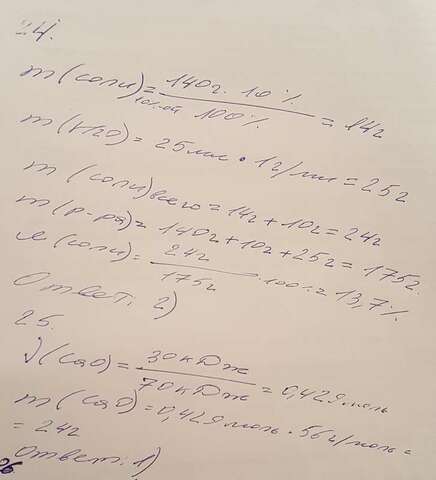 24.
m(соли) = 140г. 10% / 100% = 14г
исх.
m(H2O) = 25мл · 1г/мл = 25г
m(соли)всего = 14г + 10г = 24г
m(р-ра) = 140г + 10г + 25г = 175г.
(соли) = 24г / 175г · 100% = 13,7%
Ответ: 2)
25.
ν(CaO) = 30кДж / 70кДж = 0,429моль
m(CaO) = 0,429моль · 56г/моль =
= 24г
Ответ: 1)
26